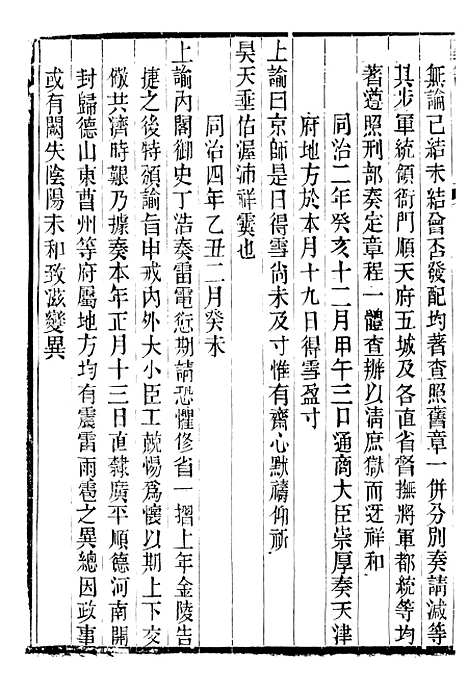 無論已結未結曾否發配均著查照舊章一併分別奏請減等
其步軍統領衙門順天府五城及各直省督撫將軍都統等均
著遵照刑部奏定章程一體查辦以淸庶獄而迓祥和
同治二年癸亥十二月甲午三口通商大臣崇厚奏天津
府地方於本月十九日得雪盈寸
上諭曰京師是日得雪尚未及寸惟有齋心默禱仰祈
昊天垂佑渥沛祥霙也
同治四年乙丑二月癸未
上諭內閣御史丁浩奏雷電愆期請恐懼修省一摺上年金陵告
捷之後特頒諭旨申戒內外大小臣工兢惕爲懷以期上下交
儆共濟時艱乃據奏本年正月十三日直隸廣平順德河南開
封歸德山東曹州等府屬地方均有震雷雨雹之異總因政事
或有闕失陰陽未和致滋變異